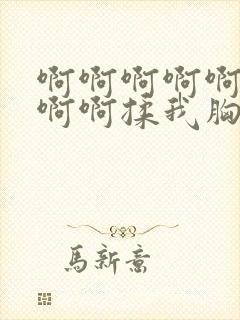 啊啊啊啊啊
啊啊揉我胸
馬新意